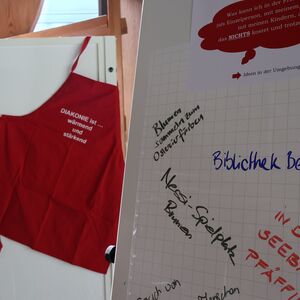 DIAKONIE ist ...
wärmend
und
stärkend
Was kann ich in der
als Einzelperson, mit meinem
mit meinen Kindern,
das NICHTS kostet und trotz
Ideen in der Umgebung
Blumen
sammeln zum
Ostereierfärben
Bibliothek Be
Nessi-Spielplatz
Brunnen
IN D
SEEB
PFÄFF
von